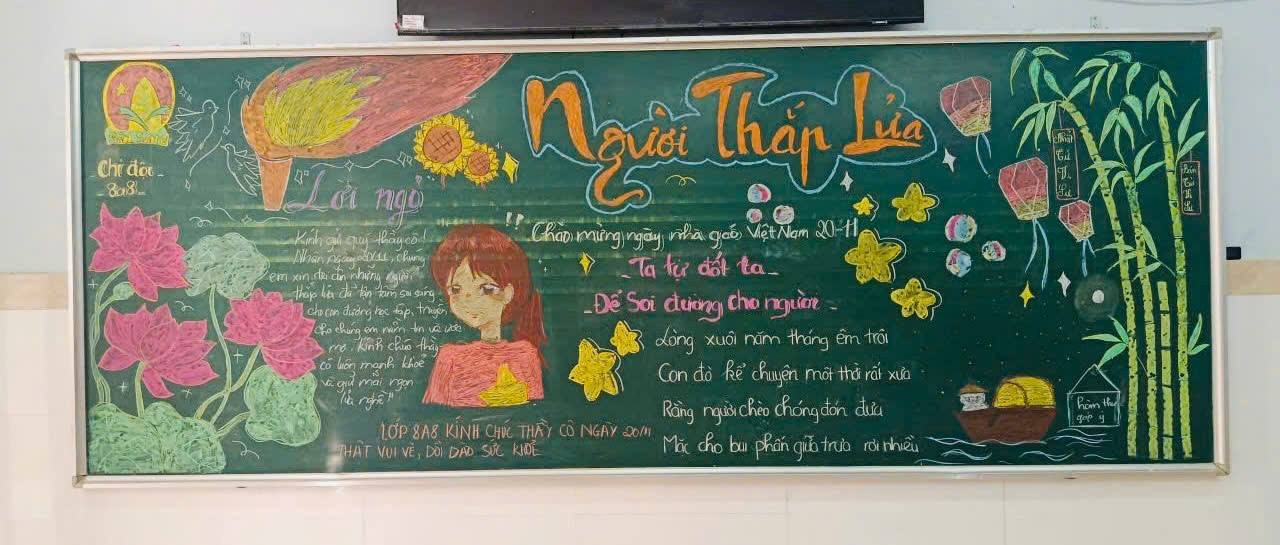 Người Thắp Lửa
Chi đội
8a8
Lời ngỏ
Kính gửi quý thầy cô!
Nhân ngày 20/11, chúng
em xin đa tạ những người
thắp lửa đã tận tâm soi sáng
cho con đường học tập, truyền
cho chúng em niềm tin và ước
mơ. Kính chúc thầy
cô luôn mạnh khoẻ
và giữ mãi ngọn
lửa nghề"
LỚP 8A8 KÍNH CHÚC THẦY CÔ NGÀY 20/11
THẬT VUI VẺ, DỒI DÀO SỨC KHOẺ
Chào mừng ngày nhà giáo Việt Nam 20-11
- Ta tự đốt ta -
- Để Soi đường cho người -
Lòng xuôi năm tháng êm trôi
Con đò kể chuyện một thời rất xưa
Rằng người chèo chống đón đưa
Mặc cho bụi phấn giữa trưa rơi nhiều
Nhất
Tự
Vi
Sư
Bán
Tự
Vi
Sư
hòm thư
góp ý